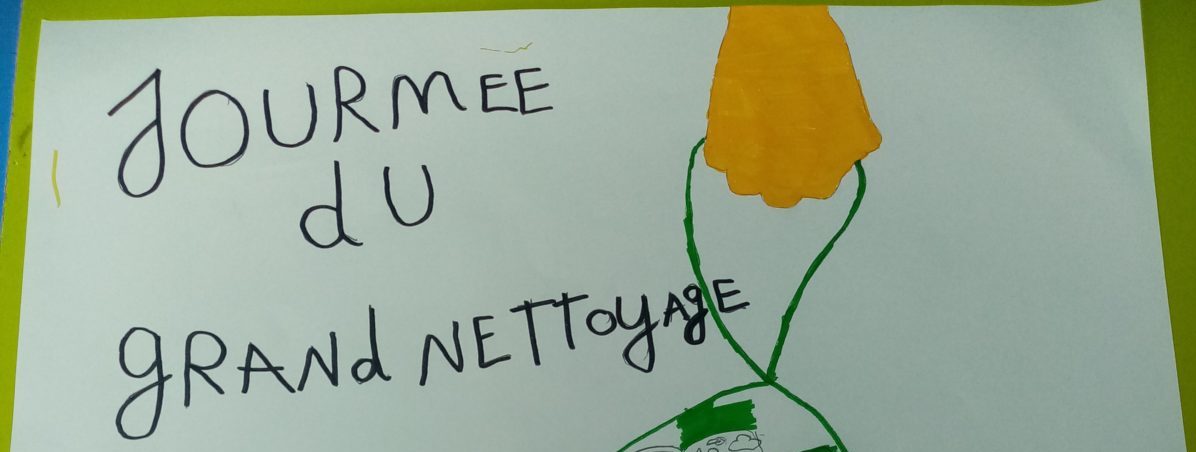 JOURMEE
dU
gRANd NETToyAgE